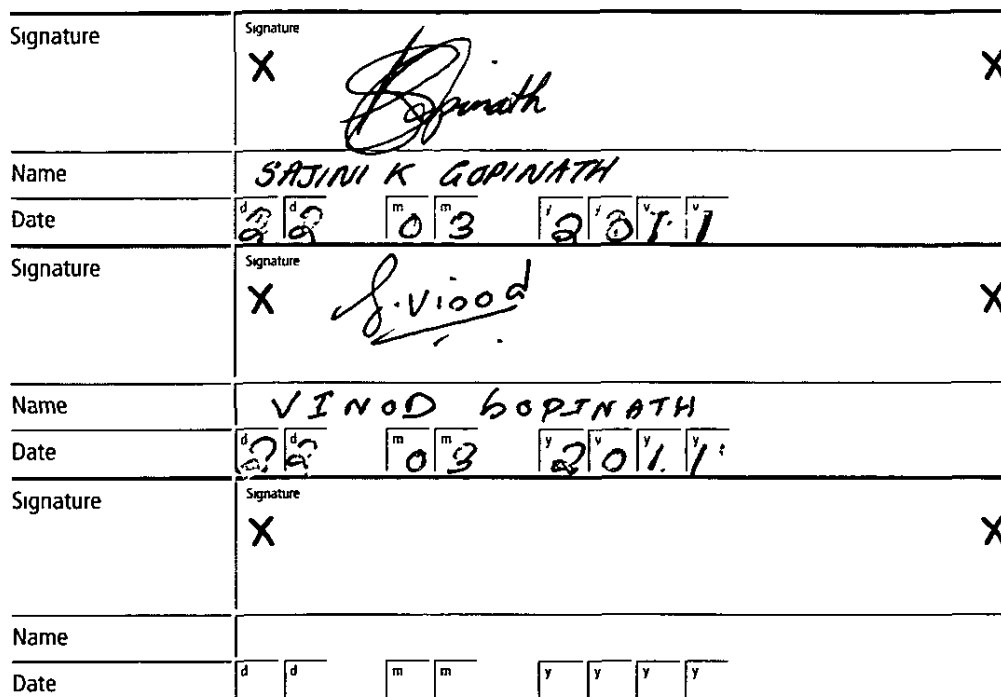 Signature Signature
X X
Gopinath
Name SAJINI K GOPINATH
Date d d m m y y y y
22 03 2011
Signature Signature
X X
G. Vinod
Name VINOD GOPINATH
Date d d m m y y y y
22 03 2011
Signature Signature
X X
Name
Date d d m m y y y y